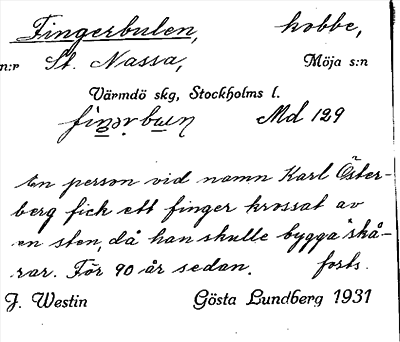 Fingerbulen, kobbe,
n:r St. Nassa, Möja s:n
Värmdö skg, Stockholms l.
Md 129
En person vid namn Karl Öster-
berg fick ett finger krossat av
en sten, då han skulle bygga "skå-
rar. För 90 år sedan. forts.
J. Westin Gösta Lundberg 1931